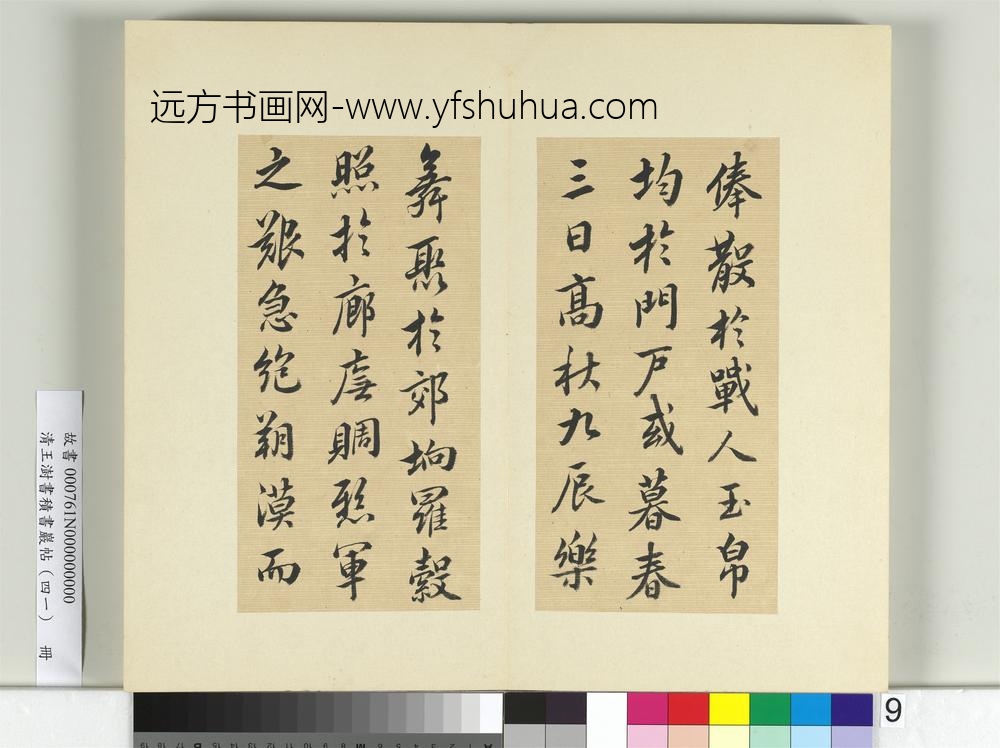 远方书画网-www.yfshuhua.com
俸散於戰人玉帛
均於門戸或暮春
三日高秋九辰樂
舞聚於郊坰羅縠
照於廊廡賙懸軍
之艱急絶朔漠而
故書 000761N000000000
清王澍書積書巖帖（四一） 冊
9